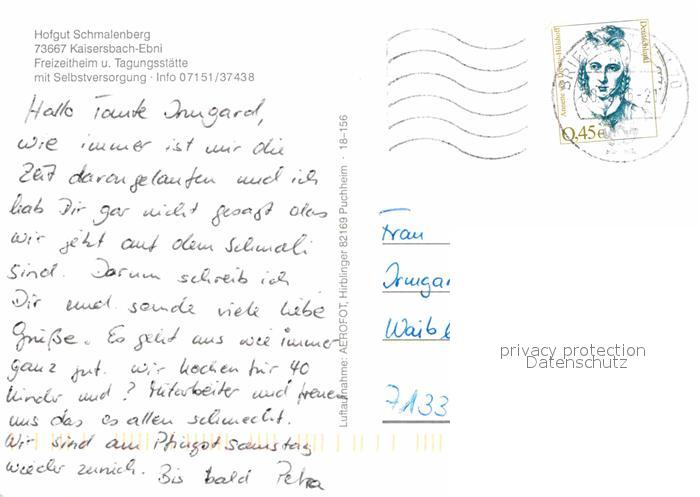 Hofgut Schmalenberg
73667 Kaisersbach-Ebni
Freizeitheim u. Tagungsstätte
mit Selbstversorgung · Info 07151/37438
Hallo Tante Irmgard,
wie immer ist mir die
Zeit darongelaufen und ich
hab Dir gar nicht gesagt das
wir jetzt auf dem Schmali
sind. Darum schreib ich
Dir und sende viele liebe
Grüße. Es geht uns wie immer
ganz gut. Wir kochen für 40
Kinder und ? Mitarbeiter und freuen
uns das es allen schmeckt.
Wir sind am Pfingstsamstag
wieder zurück. Bis bald Petra
Luftaufnahme: AEROFOT, Hirblinger 82169 Puchheim · 18-156
Annette von Droste-Hülshoff
Deutschland
0,45€
BRIEF
70
Frau
Irmgar
Waib
7133
privacy protection
Datenschutz